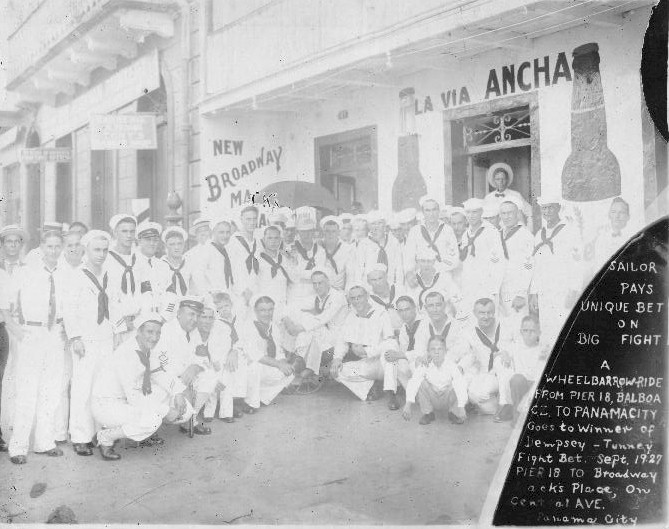 LA VIA ANCHA
NEW
BROADWAY
SAILOR
PAYS
UNIQUE BET
ON
BIG FIGHT
A
WHEELBARROW-RIDE
FROM PIER 18, BALBOA
C.Z. TO PANAMACITY
Goes to Winner of
Dempsey – Tunney
Fight Bet. Sept. 1927
PIER 18 TO Broadway
acks Place, On
Central AVE.
Panama City